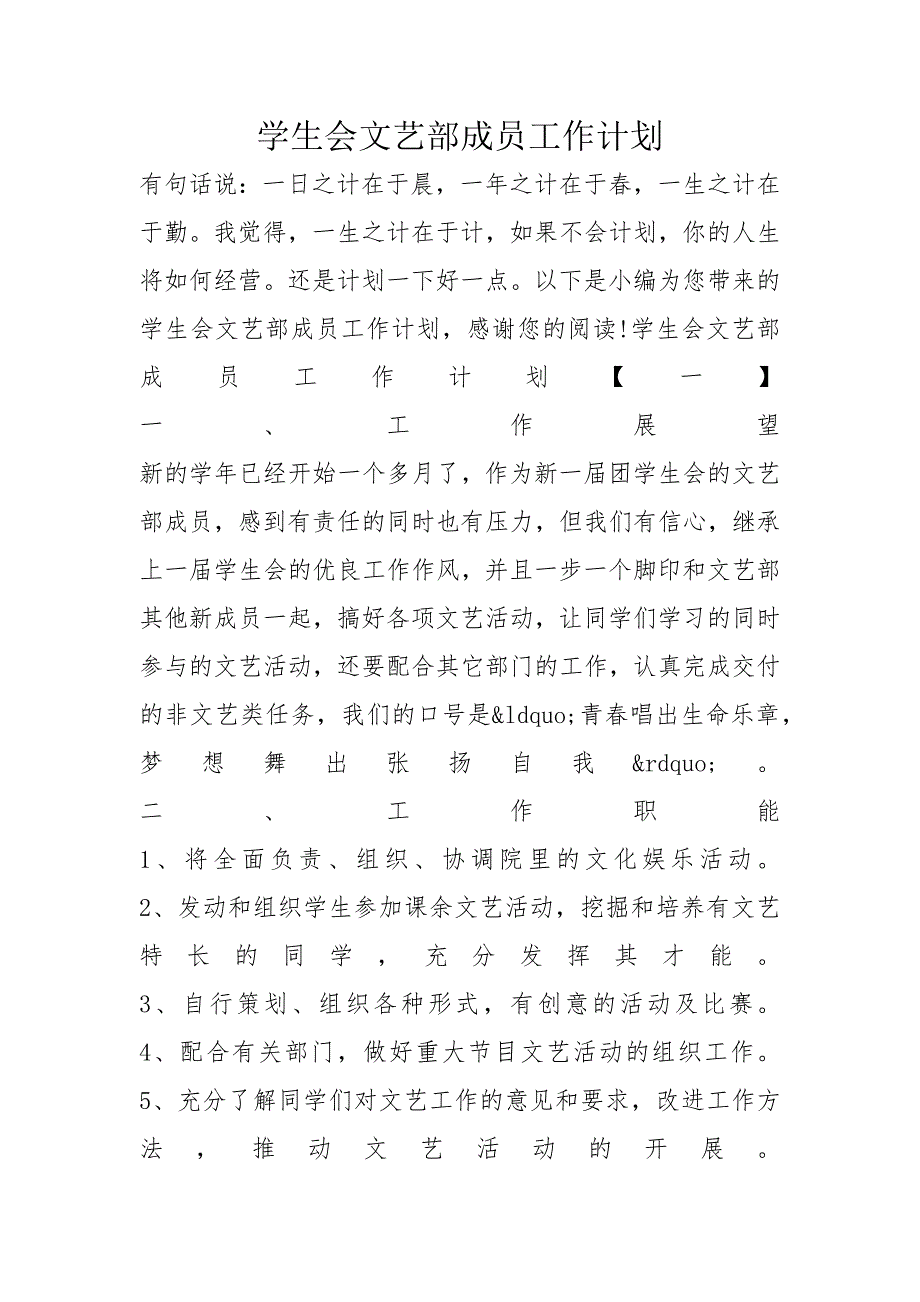 学生会文艺部成员工作计划
有句话说：一日之计在于晨，一年之计在于春，一生之计在
于勤。我觉得，一生之计在于计，如果不会计划，你的人生
将如何经营。还是计划一下好一点。以下是小编为您带来的
学生会文艺部成员工作计划，感谢您的阅读!学生会文艺部
成员工作计划【一】
一、工作展望
新的学年已经开始一个多月了，作为新一届团学生会的文艺
部成员，感到有责任的同时也有压力，但我们有信心，继承
上一届学生会的优良工作作风，并且一步一个脚印和文艺部
其他新成员一起，搞好各项文艺活动，让同学们学习的同时
参与的文艺活动，还要配合其它部门的工作，认真完成交付
的非文艺类任务，我们的口号是&ldquo;青春唱出生命乐章，
梦想舞出张扬自我&rdquo;。
二、工作职能
1、将全面负责、组织、协调院里的文化娱乐活动。
2、发动和组织学生参加课余文艺活动，挖掘和培养有文艺
特长的同学，充分发挥其才能。
3、自行策划、组织各种形式，有创意的活动及比赛。
4、配合有关部门，做好重大节目文艺活动的组织工作。
5、充分了解同学们对文艺工作的意见和要求，改进工作方
法，推动文艺活动的开展。